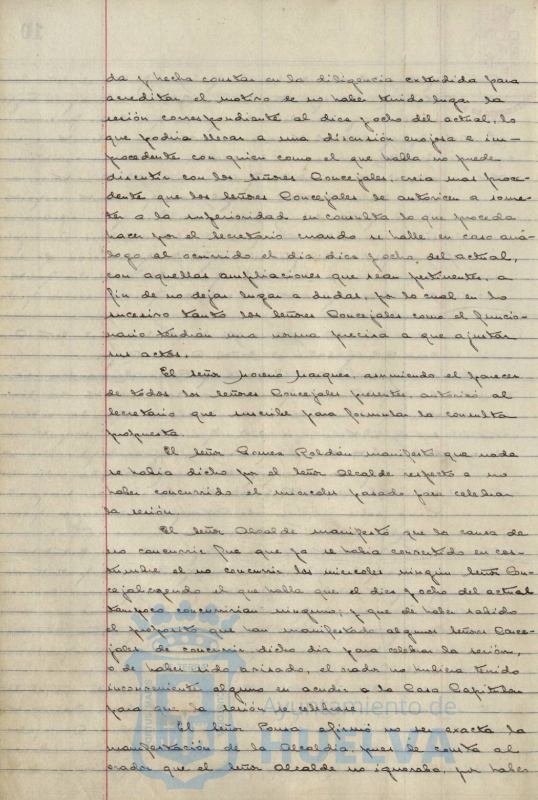 da y hecha constar en la diligencia extendida para
acreditar el motivo de no haber tenido lugar la
sesión correspondiente al dies y ocho del actual, lo
que podria llevar a una discusión enojosa e im-
procedente con quien como el que habla no puede
discutir con los Señores Concejales, creia mas proce-
dente que los Señores Concejales le autoricen a some-
ter a la superioridad en consulta lo que proceda
hacer por el Secretario cuando se halle en caso aná-
logo al ocurrido el dia dies y ocho del actual,
con aquellas ampliaciones que sean pertinentes, a
fin de no dejar lugar a dudas, por lo cual en lo
sucesivo tanto los Señores Concejales como el funcio-
nario tendrán una norma precisa a que ajustar
sus actos.
El Señor Moreno Marquez, asumiendo el parecer
de todos los Señores Concejales presentes, autorizó al
Secretario que suscribe para formular la consulta
propuesta.
El Señor Gomez Roldán manifestó que nada
se habia dicho por el Señor Alcalde respecto a no
haber concurrido el miercoles pasado para celebrar
la sesión.
El Señor Alcalde manifestó que la causa de
no concurrir fue que ya se habia convertido en cos-
tumbre el no concurrir los miercoles ningun Señor Con-
cejal creyendo el que habla que el dies y ocho del actual
tampoco concurririan ninguno; y que de haber sabido
el proposito que han manifestado algunos Señores Conce-
jales de concurrir dicho dia para celebrar la sesión,
o de haber sido avisado, el orador no hubiera tenido
inconveniente alguno en acudir a la Casa Capitular
para que la sesión se celebrase.
El Señor Ponce afirmó no ser exacta la
manifestación de la Alcaldia, pues le consta al
orador que el Señor Alcalde no ignoraba, por haber
Ayuntamiento de
HUELVA